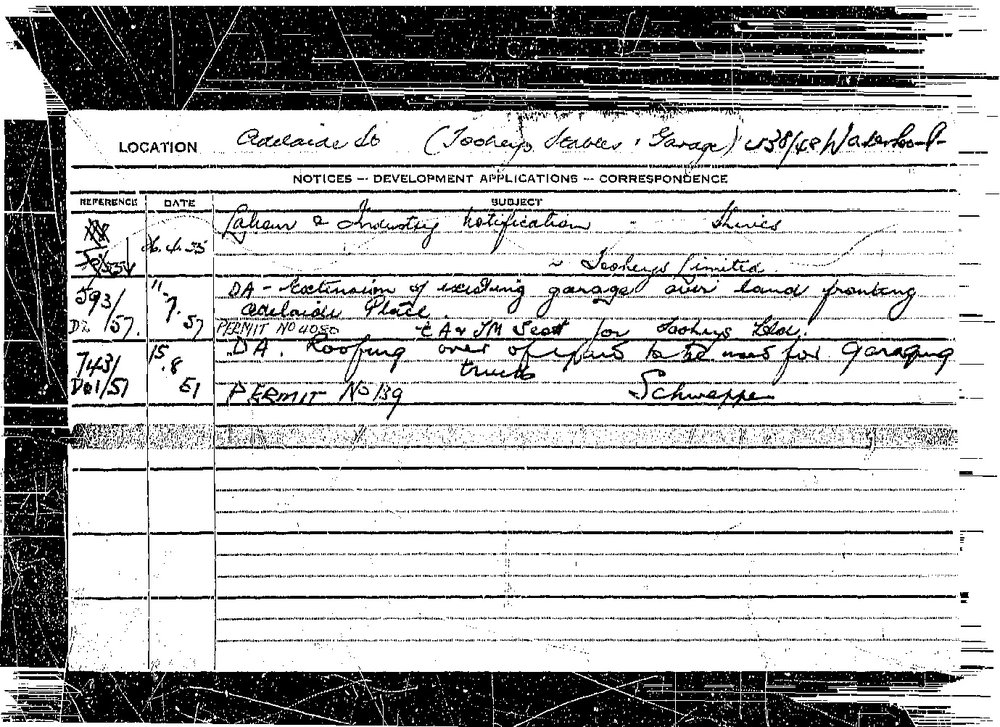 LOCATION Adelaide St (Tooheys Stables & Garage) 38/48
NOTICES -- DEVELOPMENT APPLICATIONS -- CORRESPONDENCE
REFERENCE DATE SUBJECT
Labour & Industry Notification
Tooheys Limited.
593/ 11. 7. 57 DA - Extension of existing garage over land fronting
Adelaide Place.
57. PERMIT NO 4080 E A & T M Scott for Tooheys Ltd.
743/ 15 .8 DA. Roofing over of to be used for garaging
trucks
PERMIT No 139 Schweppes